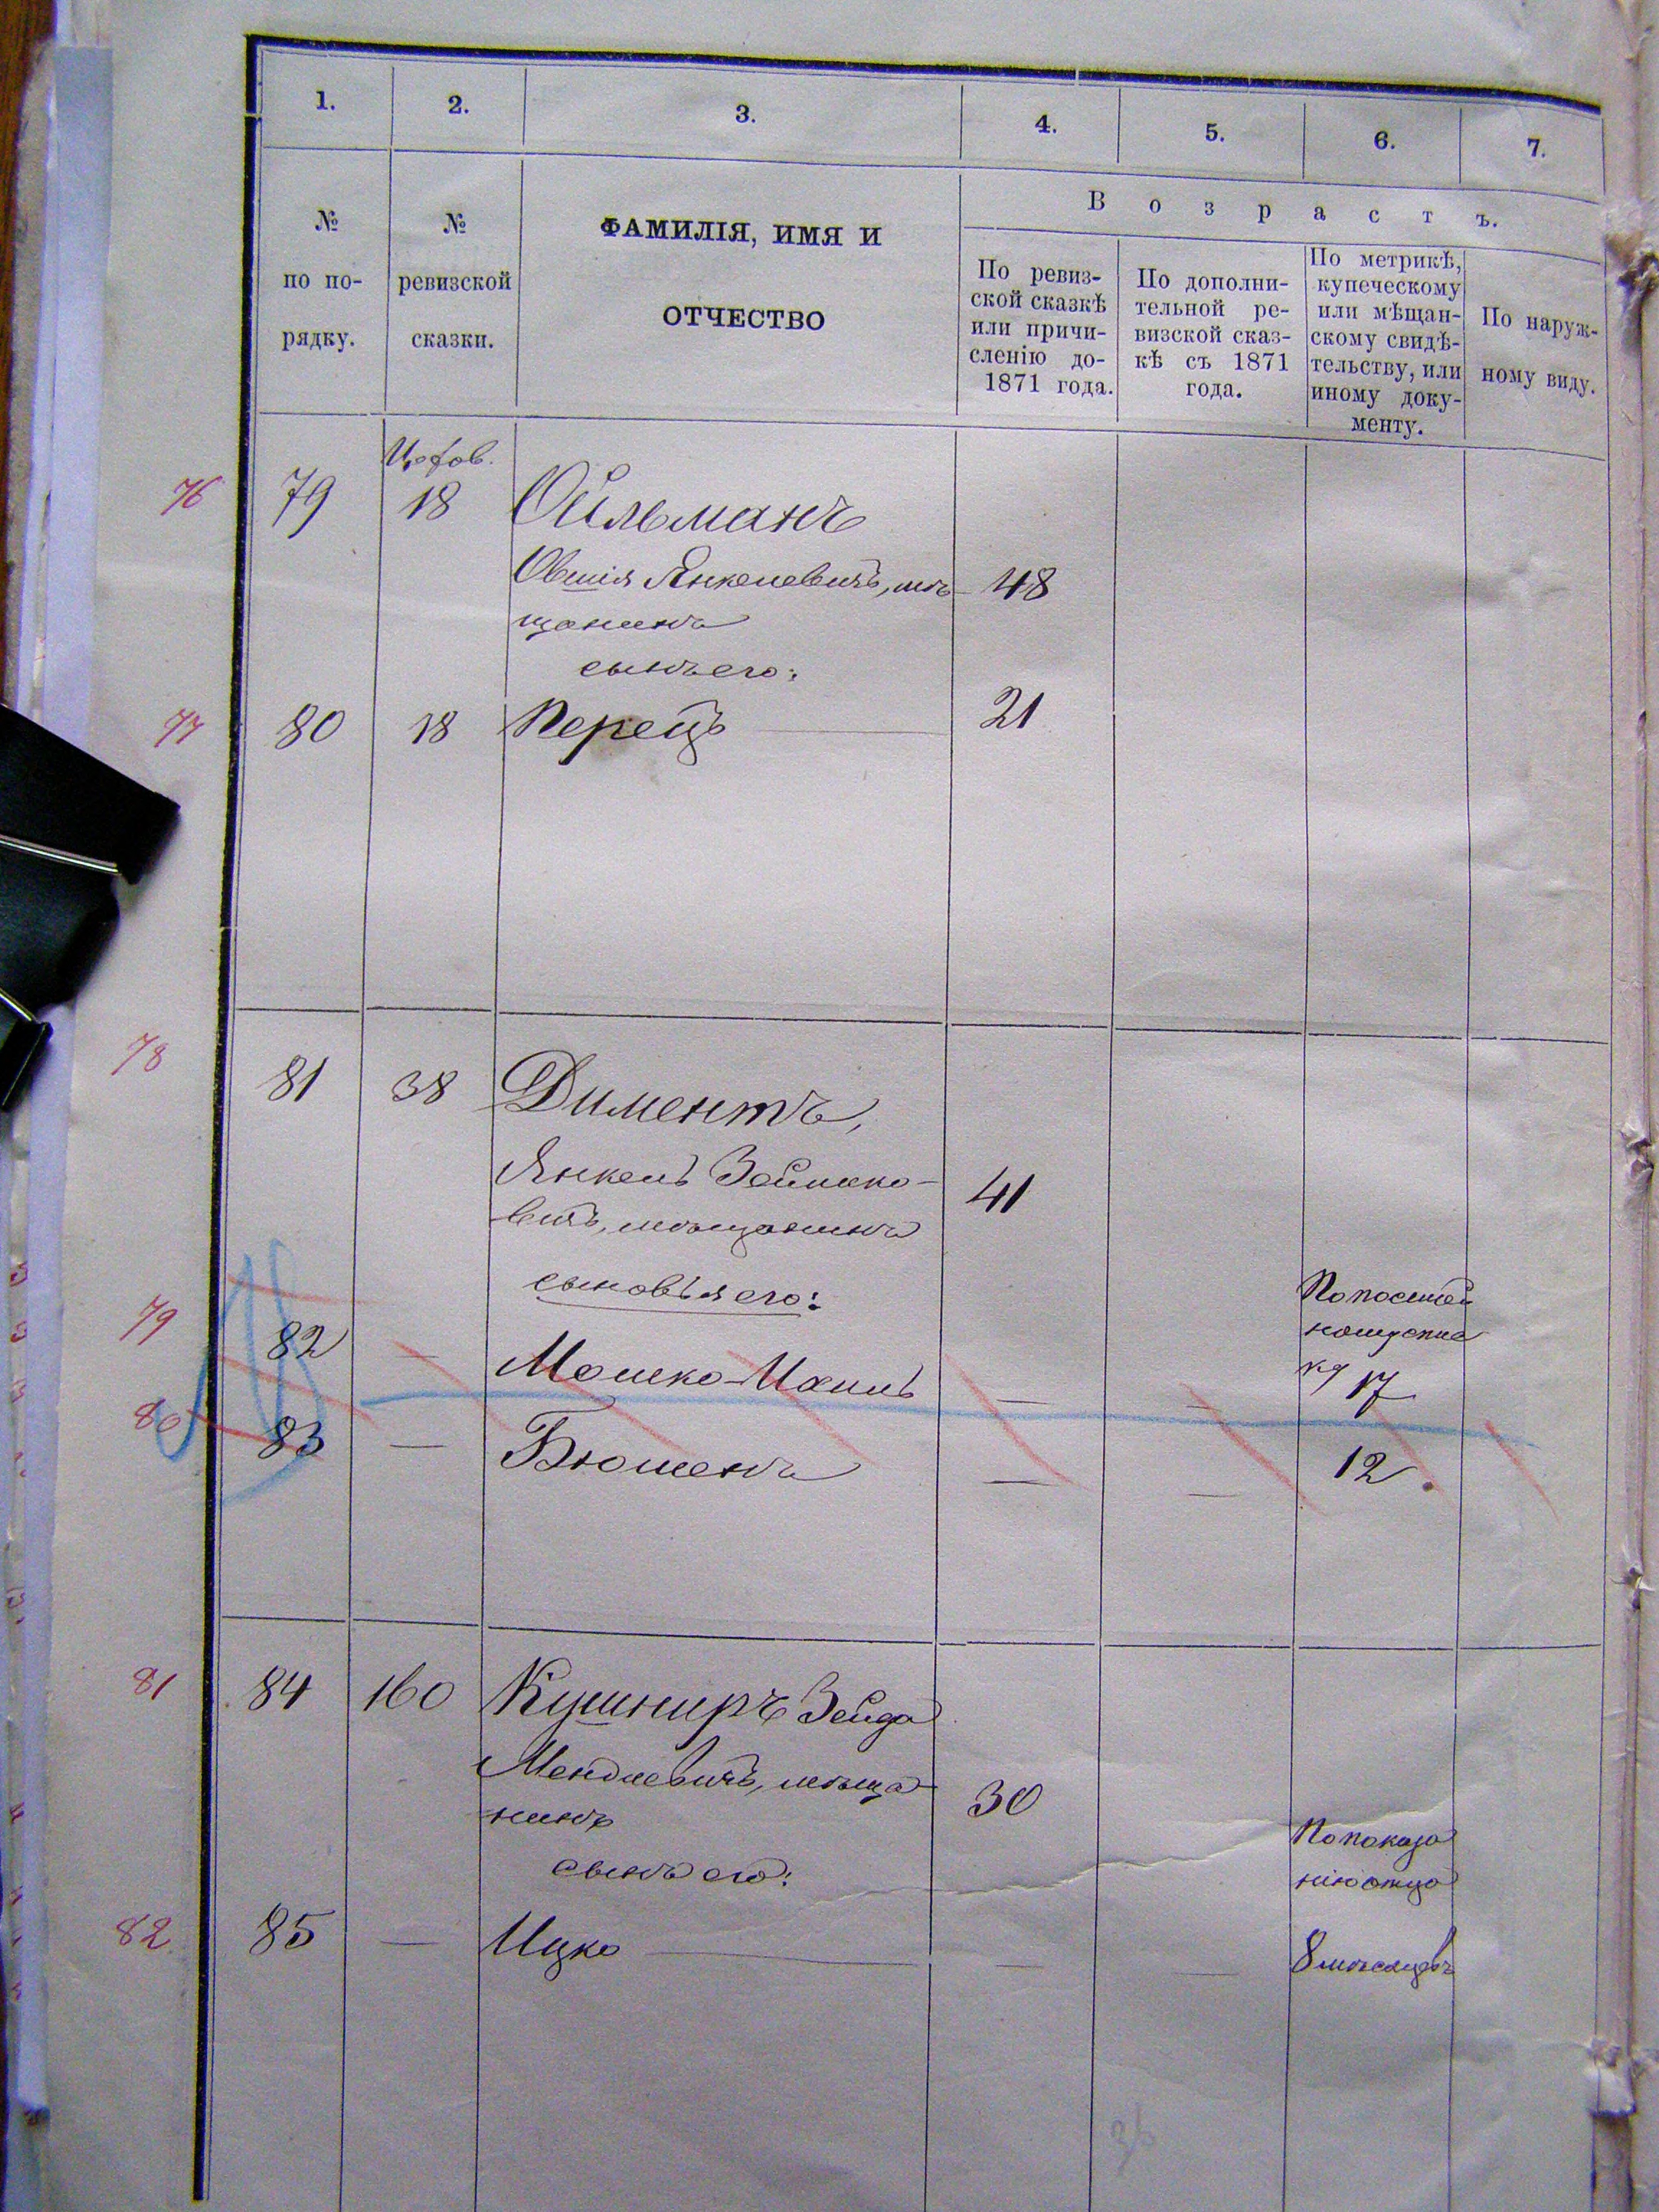 1.
2.
3.
4.
5.
6.
7.
№ по порядку.
№ ревизской сказки.
ФАМИЛІЯ, ИМЯ И
ОТЧЕСТВО
Возрастъ.
По ревиз-
ской сказкѣ
или причи-
сленію до-
1871 года.
По дополни-
тельной ре-
визской сказ-
кѣ съ 1871
года.
По метрикѣ,
купеческому
или мѣщан-
скому свидѣ-
тельству, или
иному доку-
менту.
По наруж-
ному виду.
76 79 18 Ойльманъ
Овшія Янкелевичъ, мѣ- 48
щанинъ
сынъ его:
77 80 18 Перецъ 21
78 81 38 Диментъ,
Янкель 41
вичъ, мѣщанинъ
сыновья его:
79 82 — Мошко — — 17
80 83 — Бюменъ — — 12.
81 84 160 Кушниръ Зейда
Менделевичъ, мѣща- 30
нинъ
сынъ его:
По показа
нію отца
82 85 — Ицко — — 8 мѣсяцевъ
36